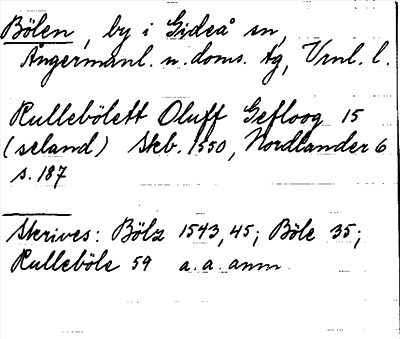 Bölen, by i Gideå sn,
Ångermanl. n. doms. tg, Vrnl. l.
Kullebölett Oluff Gefloog 15
(seland) Skb. 1550, Nordlander 6
s. 187
Skrives: Böle 1543, 45; Böle 35;
Kulleböle 59 a. a. anm.